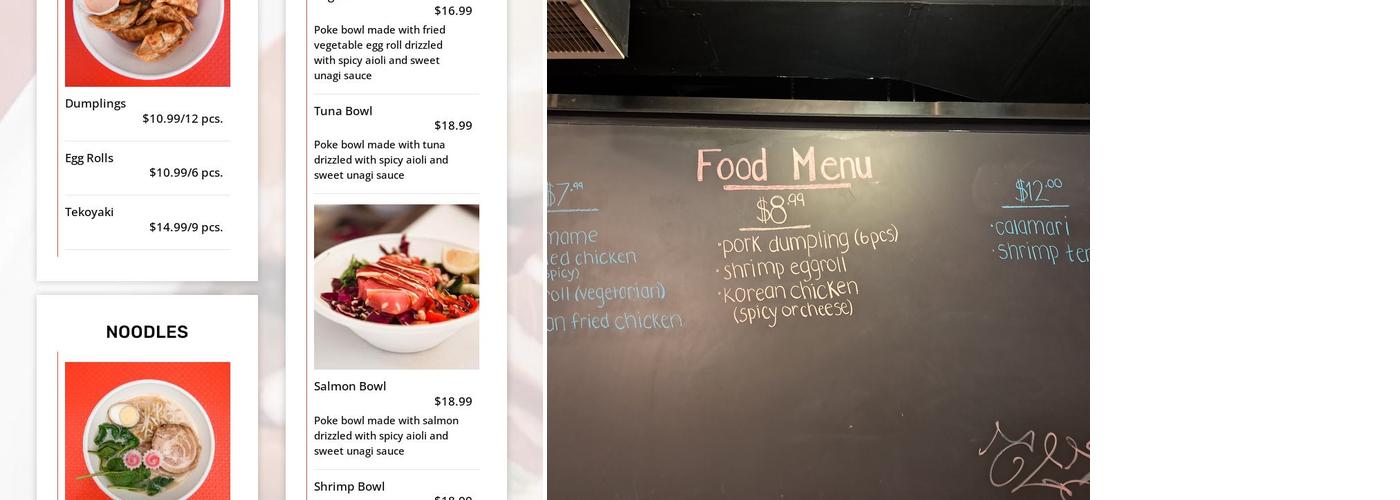 Dumplings
$10.99/12 pcs.
Egg Rolls
$10.99/6 pcs.
Tekoyaki
$14.99/9 pcs.
NOODLES
$16.99
Poke bowl made with fried
vegetable egg roll drizzled
with spicy aioli and sweet
unagi sauce
Tuna Bowl
$18.99
Poke bowl made with tuna
drizzled with spicy aioli and
sweet unagi sauce
Salmon Bowl
$18.99
Poke bowl made with salmon
drizzled with spicy aioli and
sweet unagi sauce
Shrimp Bowl
$18.99
Food Menu
$7.99
chicken
(vegetarian)
fried chicken
$8.99
·pork dumpling (6pcs)
·shrimp eggroll
·Korean chicken
(spicy or cheese)
$12.00
·calamari
·shrimp